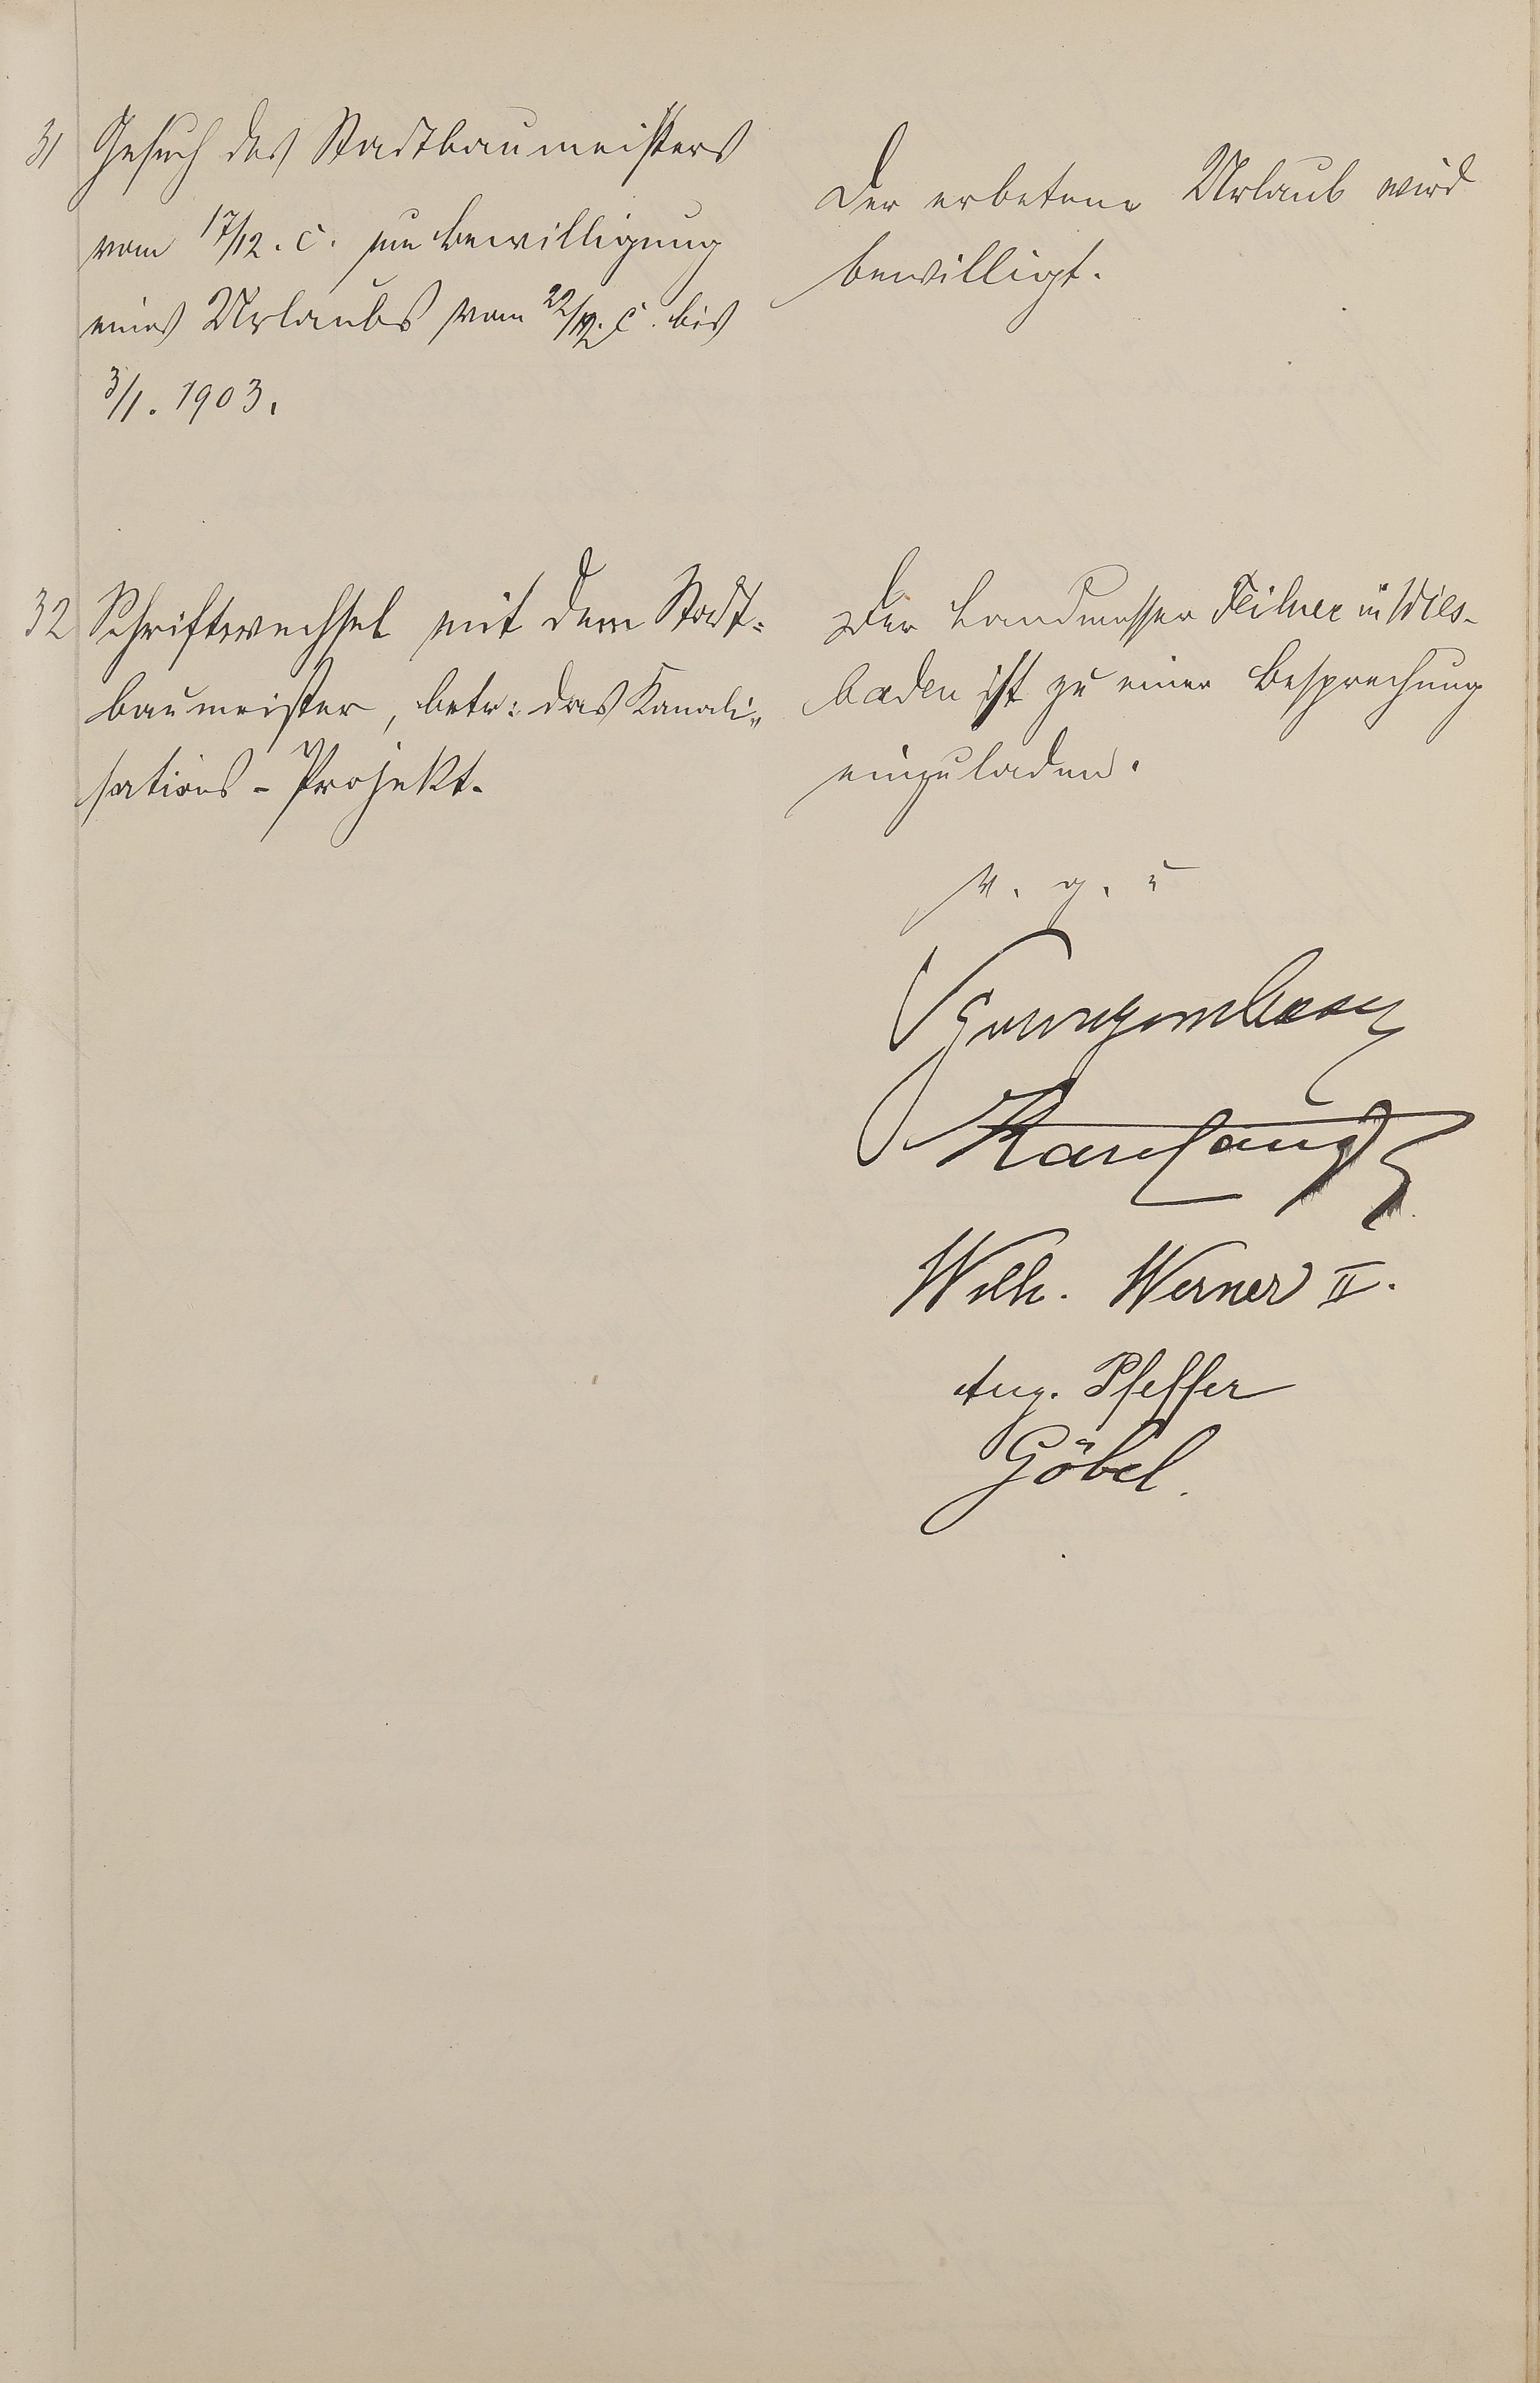 31 Gesuch des Stadtbaumeisters
vom 17/12. c. um Bewilligung
eines Urlaubs vom 22/12. c. bis
3/1. 1903.
Der erbetene Urlaub wird
bewilligt.
32 Schriftwechsel mit dem Stadt-
baumeister, betr: das Kanali-
sations-Projekt.
Der Landmesser Feilner in Wies-
baden ist zu einer Besprechung
einzuladen.
v. g. u
Wilh. Werner II.
Aug. Pfeffer
Göbel.